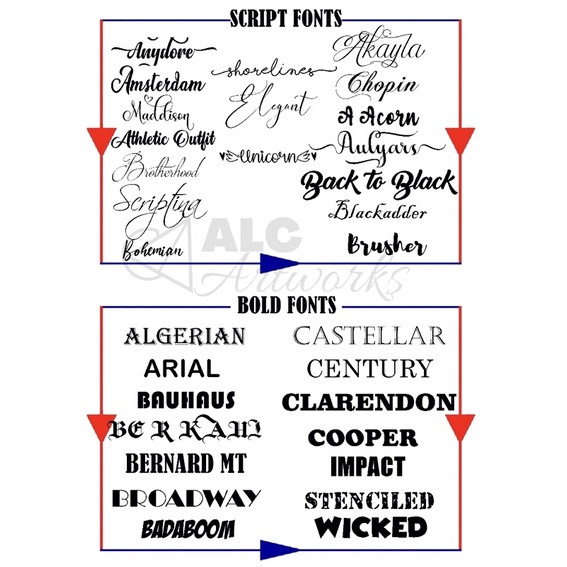 SCRIPT FONTS
Anydore
Amsterdam
Maddison
Athletic Outfit
Brotherhood
Scriptina
Bohemian
shorelines
Elegant
Unicorn
Akayla
Chopin
A Acorn
Aulyars
Back to Black
Blackadder
Brusher
ALC
Artworks
BOLD FONTS
ALGERIAN
ARIAL
BAUHAUS
BERKAUI
BERNARD MT
BROADWAY
BADABOOM
CASTELLAR
CENTURY
CLARENDON
COOPER
IMPACT
STENCILED
WICKED